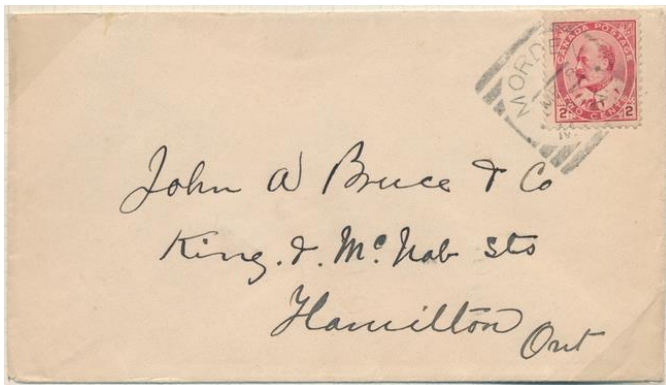 CANADA POSTAGE
2 TWO CENTS 2
MORDEN
John A Bruce & Co
King. & McNab Sts
Hamilton
Ont